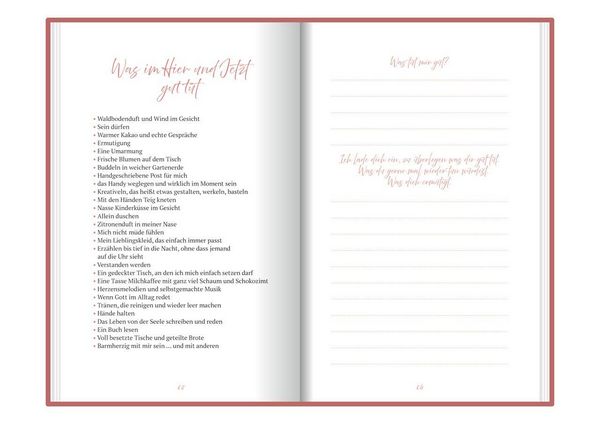 Was im Hier und Jetzt
gut tut
• Waldbodenduft und Wind im Gesicht
• Sein dürfen
• Warmer Kakao und echte Gespräche
• Ermutigung
• Eine Umarmung
• Frische Blumen auf dem Tisch
• Buddeln in weicher Gartenerde
• Handgeschriebene Post für mich
• das Handy weglegen und wirklich im Moment sein
• Kreativeln, das heißt etwas gestalten, werkeln, basteln
• Mit den Händen Teig kneten
• Nasse Kinderküsse im Gesicht
• Allein duschen
• Zitronenduft in meiner Nase
• Mich nicht müde fühlen
• Mein Lieblingskleid, das einfach immer passt
• Erzählen bis tief in die Nacht, ohne dass jemand
auf die Uhr sieht
• Verstanden werden
• Ein gedeckter Tisch, an den ich mich einfach setzen darf
• Eine Tasse Milchkaffee mit ganz viel Schaum und Schokozimt
• Herzensmelodien und selbstgemachte Musik
• Wenn Gott im Alltag redet
• Tränen, die reinigen und wieder leer machen
• Hände halten
• Das Leben von der Seele schreiben und reden
• Ein Buch lesen
• Voll besetzte Tische und geteilte Brote
• Barmherzig mit mir sein ... und mit anderen
Was tut mir gut?
Ich lade dich ein, zu überlegen was dir gut tut.
Was du gerne mal wieder tun würdest.
Was dich ermutigt.